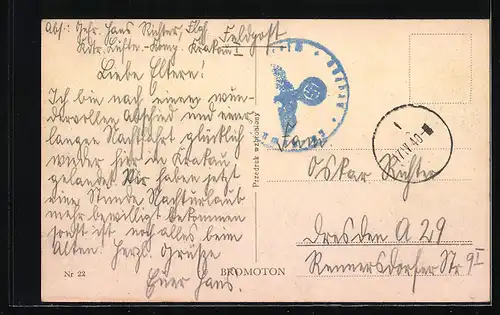 Abs.: Gefr. Hans Richter,
Kdtr. Krakau 1
Feldpost
Liebe Eltern!
Ich bin nach einem wun-
dervollen Abschied und einer
langen Nachtfahrt glücklich
wieder hier in Krakau
gelandet. Wir haben jetzt
eine Stunde Nachturlaub
mehr bewilligt bekommen
sonst ist noch alles beim
Alten. Herzl. Grüsse
Euer Hans.
Nr 22
BROMOTON
Przedruk wzbroniony
Fam
Oskar Richter
Dresden A 29
Rennersdorfer Str 9I